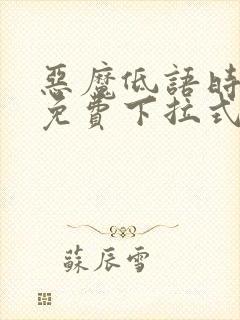 惡魔低語時
免費下拉式
蘇辰雪